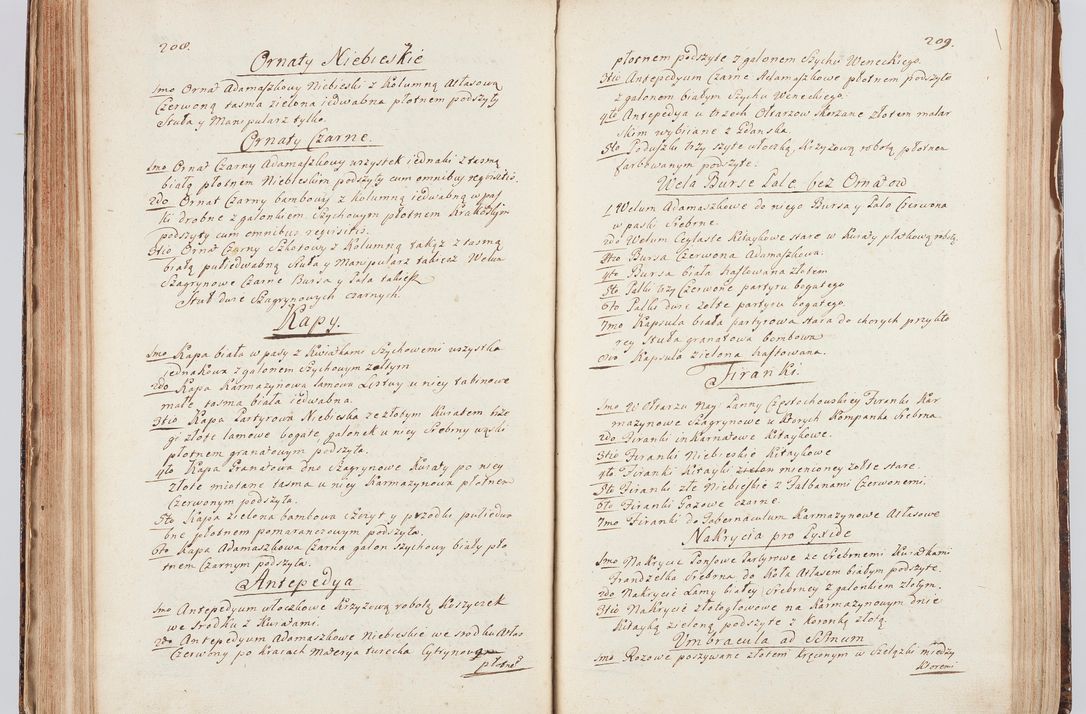 208.
Ornaty Niebieskie
1mo Ornat Adamaszkowy Niebieski z Kolumną Atłasową
Czerwoną tasma zielona iedwabna płotnem podszyty
Stuła y Manipularz tylko.
Ornaty Czarne.
1mo Ornat Czarny Adamaszkowy wszystek iednaki z tasmą
białą płotnem Niebieskim podszyty cum omnibus requisitis.
2do Ornat Czarny bambowy z Kolumną iedwabną w pas
ki drobne z galonkiem Szychowym płotnem Krakoskim
podszyty cum omnibus requisitis.
3tio Ornat Czarny Szkotowy z Kolumną takąz z tasmą
białą puliedwabną Stuła y Manipularz takiez Welum
Szagrynowe Czarne Bursa y Pala takiesz
Stuł dwie Szagrynowych czarnych.
Kapy.
1mo Kapa biała w pasy z Kwiatkami Szychowemi wszystka
iednakowa z galonem Szychowym żołtym
2do Kapa Karmazynowa lamowa Listwy u niey tabinowe
małe tasma biała iedwabna.
3tio Kapa Partyrowa Niebieska ze złotym Kwiatem
złote lamowe bogate galonek u niey Srebrny wąski
płotnem granatowym podszyta.
4to Kapa Granatowa dno Szagrynowe Kwiaty po niey
złote miotane tasma u niey Karmazynowa płotnem
Czerwonym podszyta.
5to Kapa zielona bambowa Szczyt y przodki puliedwa
bne płotnem pomaranczowym podszyta.
6to Kapa Adamaszkowa Czarna galon szychowy biały pło
tnem Czarnym podszyta.
Antepedya
1mo Antepedyum włoczkowe Krzyzową robotą Koszyczek
we srodku z Kwiatami.
2do Antepedyum Adamaszkowe Niebieskie we srodku Atłas
Czerwony po kraiach Materya turecka Cytrynowa
płotnem
209.
płotnem podszyte z galonem Szychu Weneckiego.
3tio Antepedyum Czarne Adamaszkowe płotnem podszyte
z galonem białym Szychu Weneckiego.
4to Antepedya u trzech Ołtarzow Skorzane złotem malar
skim wybiiane z Gdanska
5to Poduszki trzy szyte włoczką, Krzyzową robotą płotnem
farbowanym podszyte.
Wela Burse Pale bez Ornatow
1 Welum Adamaszkowe do niego Bursa y Pala Czerwona
w paski Srebrne.
2do Welum Ceglaste Kitaykowe stare w Kwiaty płaskową robotą.
3tio Bursa Czerwona Adamaszkowa.
4to Bursa biała haftowana złotem
5to Palki trzy Czerwone partyru bogatego
6to Palki dwie żołte partyru bogatego.
7mo Kapsula biała partyrowa stara do chorych przykto
rey Stuła granatowa bombowa
8vo Kapsula zielona haftowana.
Firanki
1mo W Ołtarzu Nay: Panny Częstochowskiey Firanki Kar
mazynowe Szagrynowe u Ktorych Kompanka Srebrna
2do Firanki inkarnatowe Kitaykowe.
3tio Firanki Niebieskie Kitaykowe
4to Firanki Kitayki mienioney żołte stare.
5to Firanki złe Niebieskie z Falbanami Czerwonemi.
6to Firanki Gazowe czarne.
7mo Firanki do Tabernaculum Karmazynowe Atłasowe
Nakrycia pro Pyxide
1mo Nakrycie Ponsowe Partyrowe ze Srebrnemi Kwiatkami
Frandzelka Srebrna do Koła Atłasem białym podszyte.
2do Nakrycie Lamy białey Srebrney z galonkiem złotym.
3tio Nakrycie złotogłowowe na Karmazynowym dnie
Kitayką zieloną podszyte z koronką złotą
Umbracula ad Scinum
1mo Rozowe poszywane złotem kręconym w Szlązki między
Ktoremi